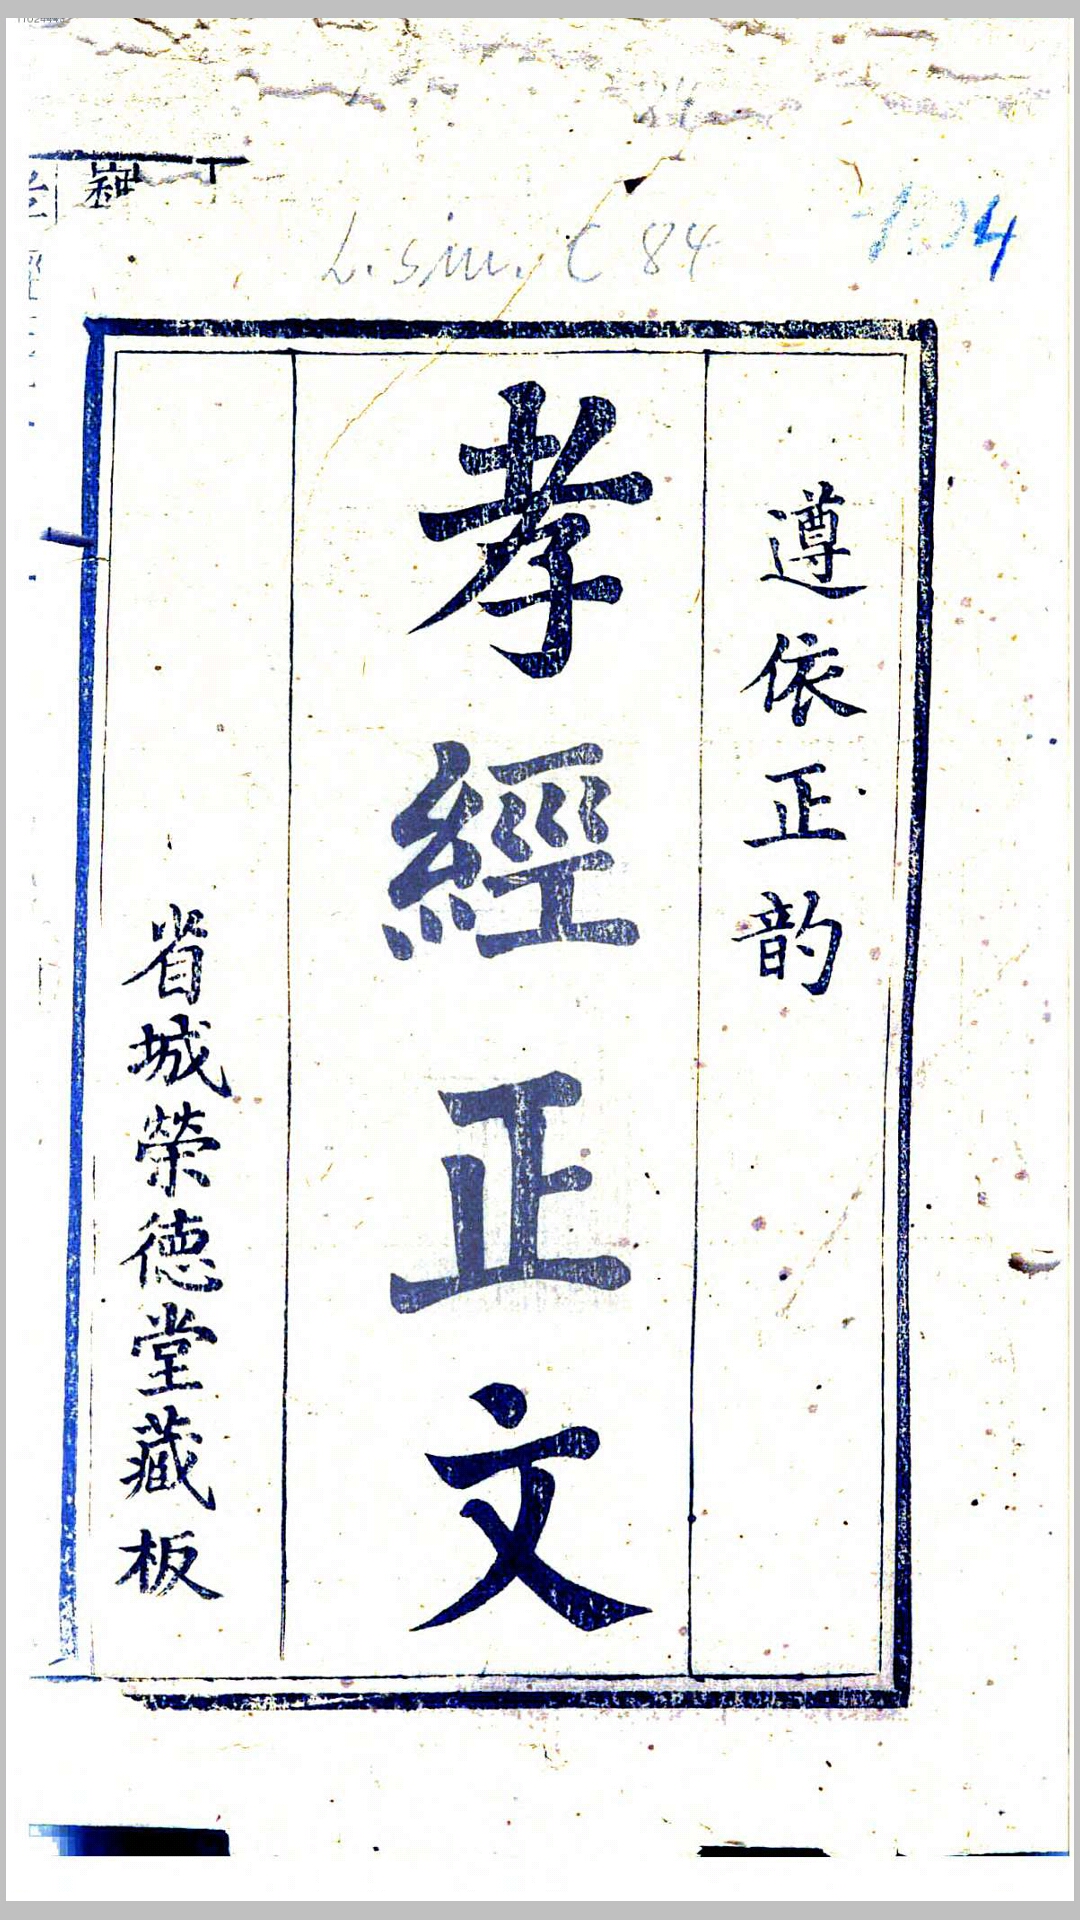 L. sin. C 84
遵依正韵
孝經正文
省城榮德堂藏板